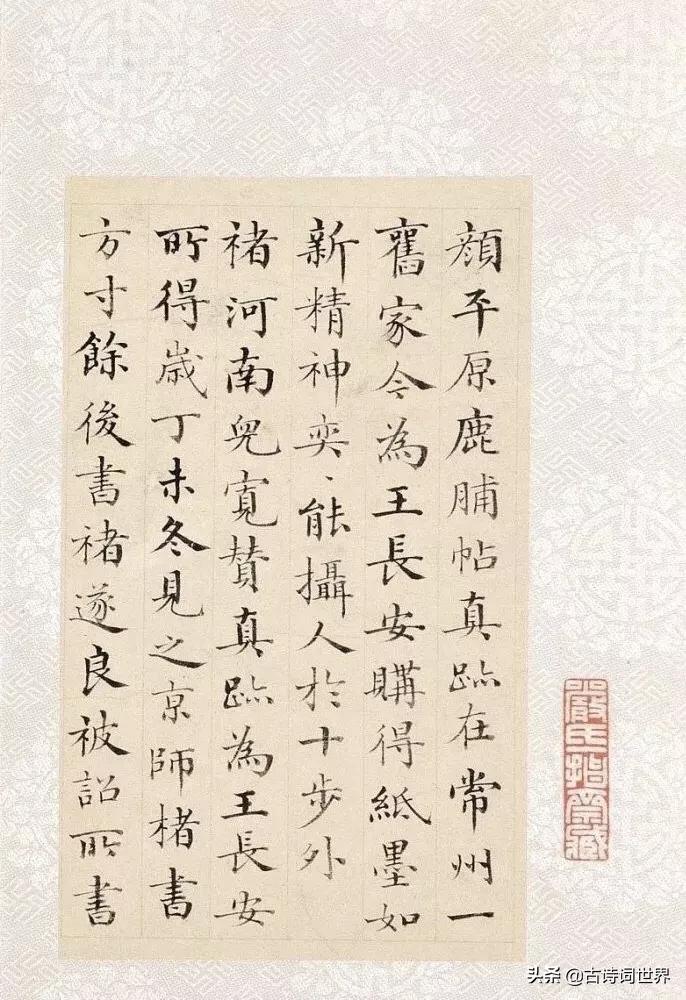 顏平原鹿脯帖真跡在常州一
舊家今為王長安購得紙墨如
新精神奕〻能攝人於十步外
褚河南兒寬贊真跡為王長安
所得歲丁未冬見之京師楮書
方寸餘後書褚遂良被詔所書
頭條 @古诗词世界